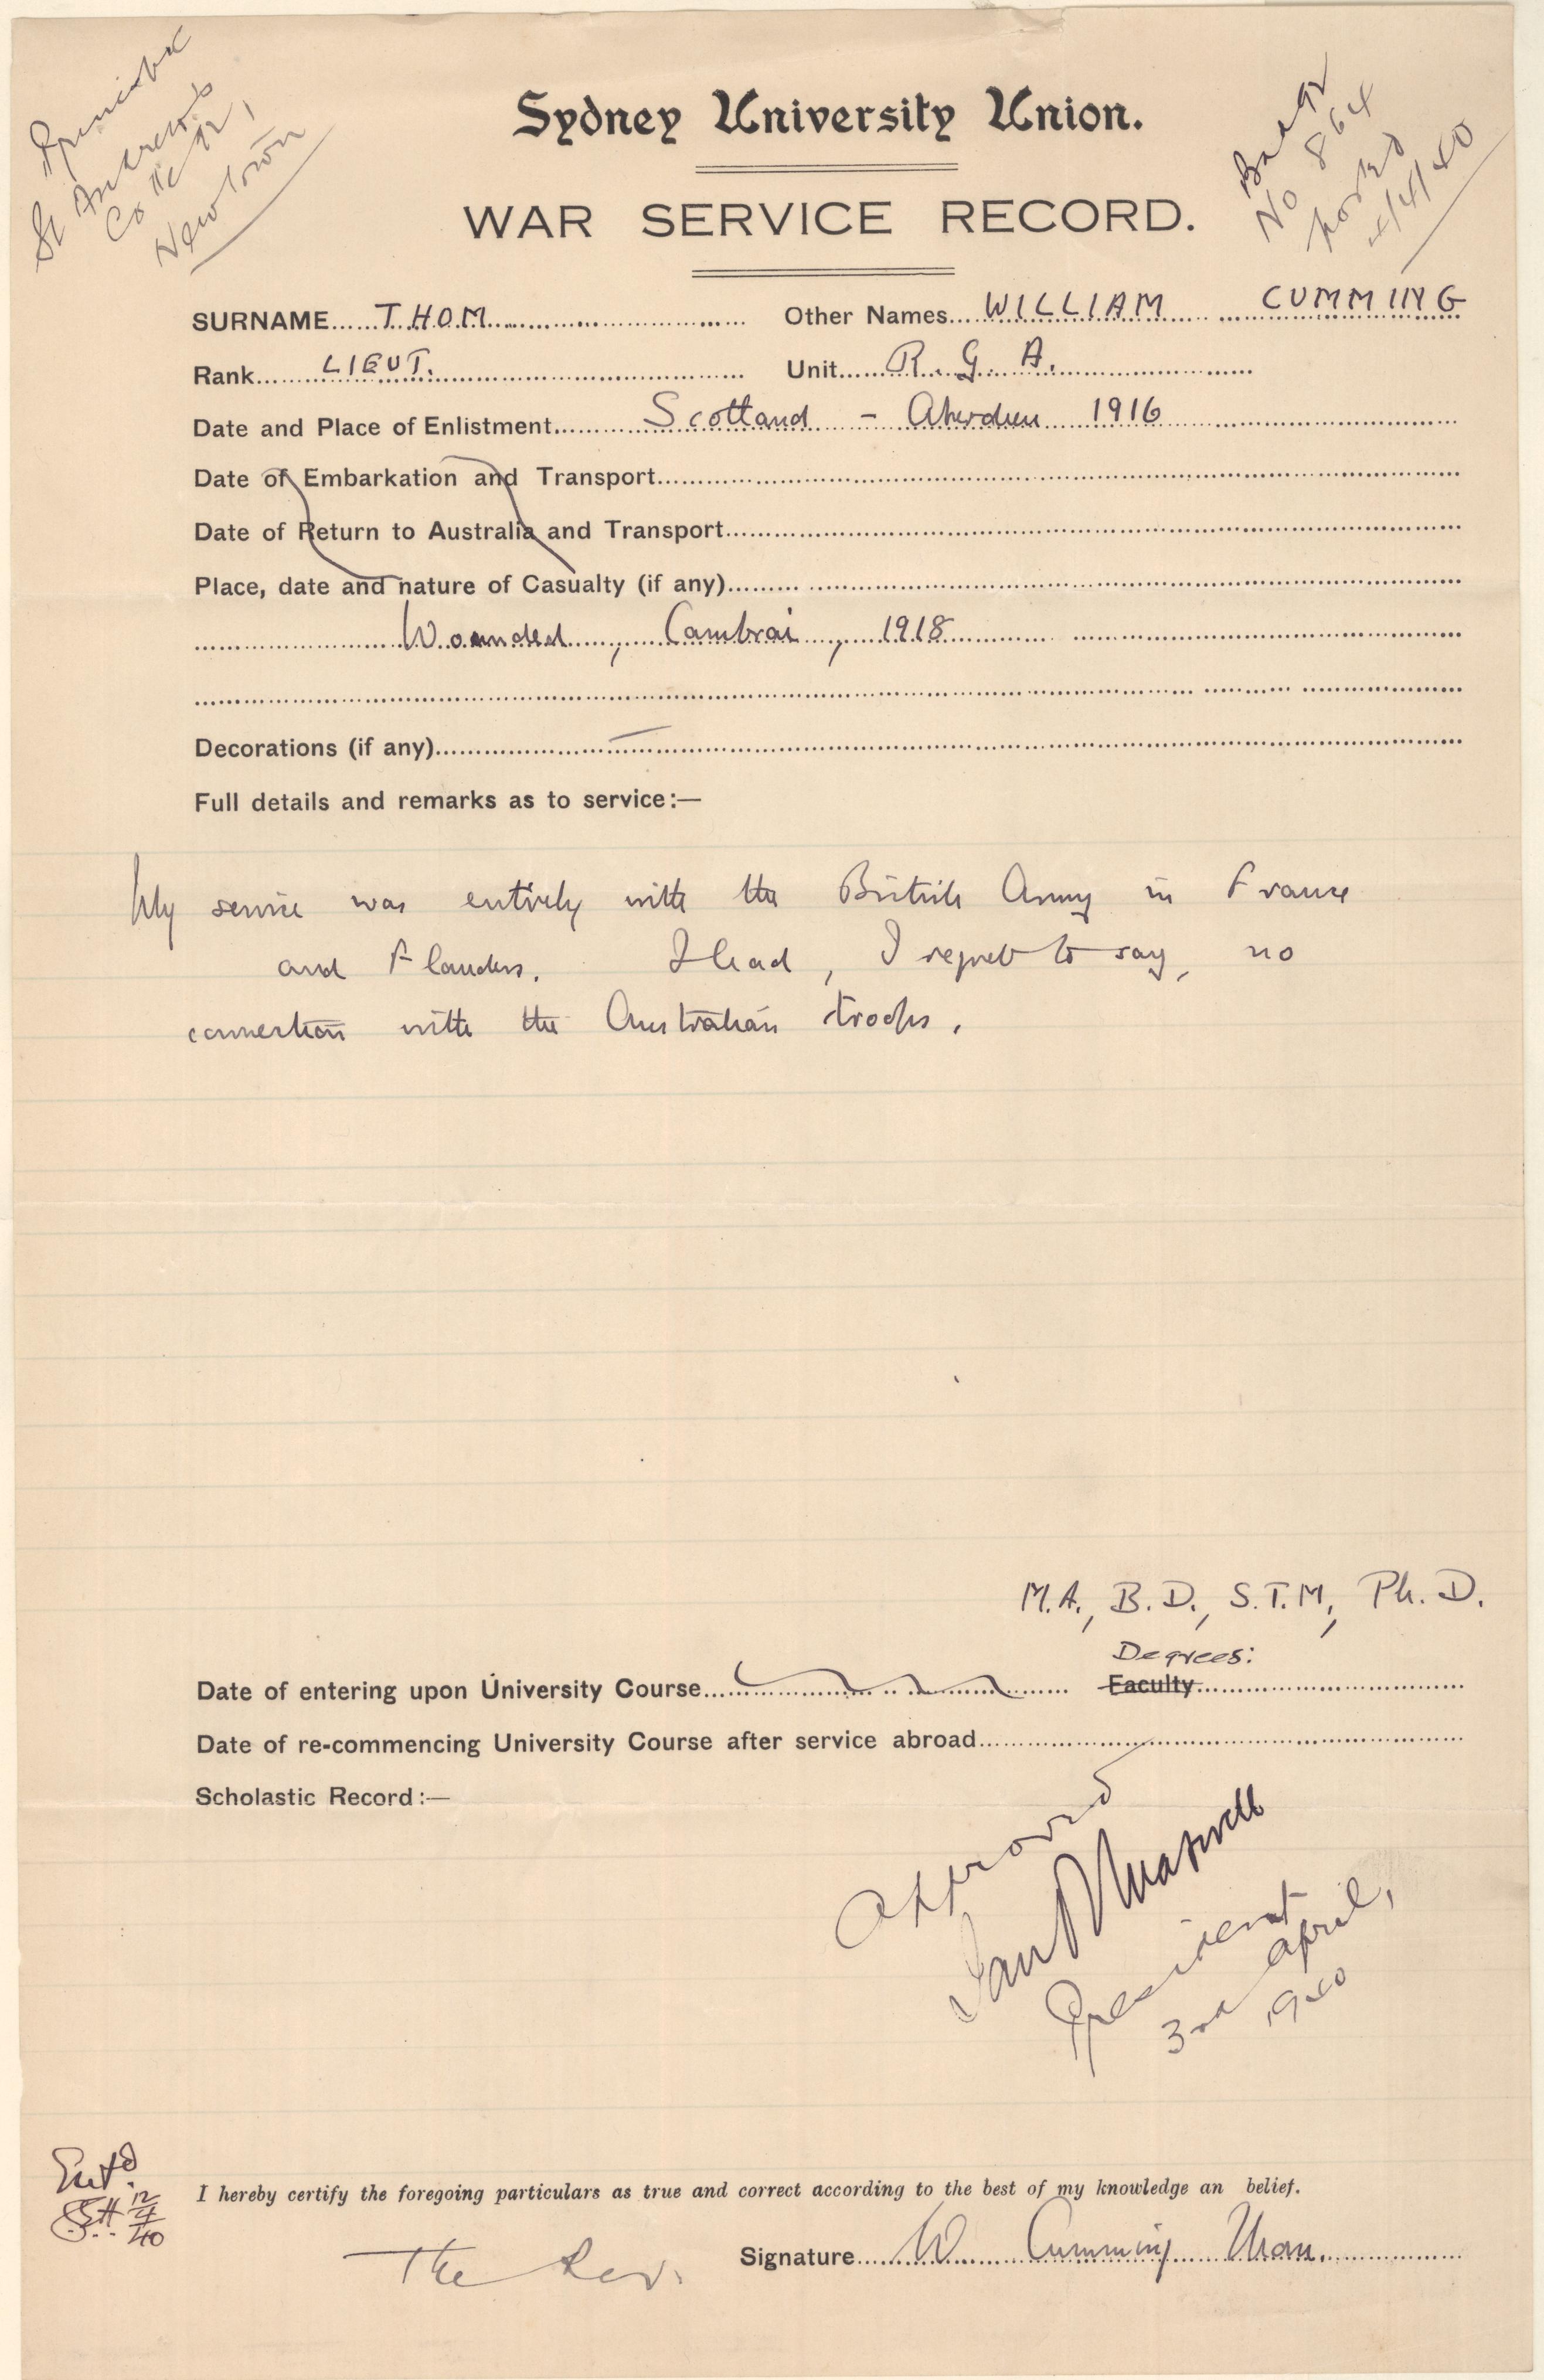 Principal
St Andrew's
College,
Newtown
Badge
No 864
posted
4/4/40
Sydney University Union.
WAR SERVICE RECORD.
SURNAME THOM Other Names WILLIAM CUMMING
Rank LIEUT. Unit R. G. A.
Date and Place of Enlistment Scotland - Aberdeen 1916
Date of Embarkation and Transport
Date of Return to Australia and Transport
Place, date and nature of Casualty (if any)
Wounded, Cambrai, 1918
Decorations (if any) —
Full details and remarks as to service:—
My service was entirely with the British Army in France
and Flanders. I had, I regret to say, no
connection with the Australian troops.
M.A., B.D., S.T.M., Ph.D.
Degrees:
Date of entering upon University Course Faculty
Date of re-commencing University Course after service abroad
Scholastic Record:—
Approved
Ian Maxwell
President
3rd April,
1940
Entd.
12/4/40
I hereby certify the foregoing particulars as true and correct according to the best of my knowledge an belief.
The Rev. Signature W Cumming Thom.